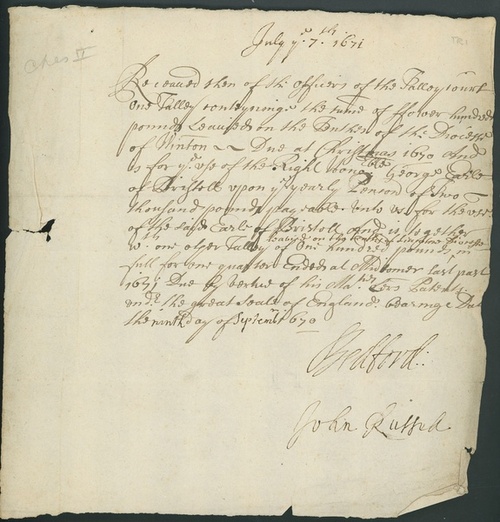 July ye 7th 1671
Ches II
Receaved then of the officers of the Talley Court
one Talley conteyninge the sume of ffower hundred
pounds Leavied on the Tenthes of the Diocesse
of Winton Due at Christmas 1670 And
is for ye use of the Right honoble George Earle
of Bristoll upon ye yearly Pencon of Two
thousand pounds payeable unto us for the use
of the said Earle of Bristoll And is together
Leavied on the Tenthes of Lincolne Diocesse
wi: one other Talley of One hundred pounds, in
full for one quarter Ended at Midsomer last past
1671 Due by vertue of his Matis Lers Patents
undr the great Seale of England bearinge Date
the ninth day of Septembr 1670
Bedford:
John Russell